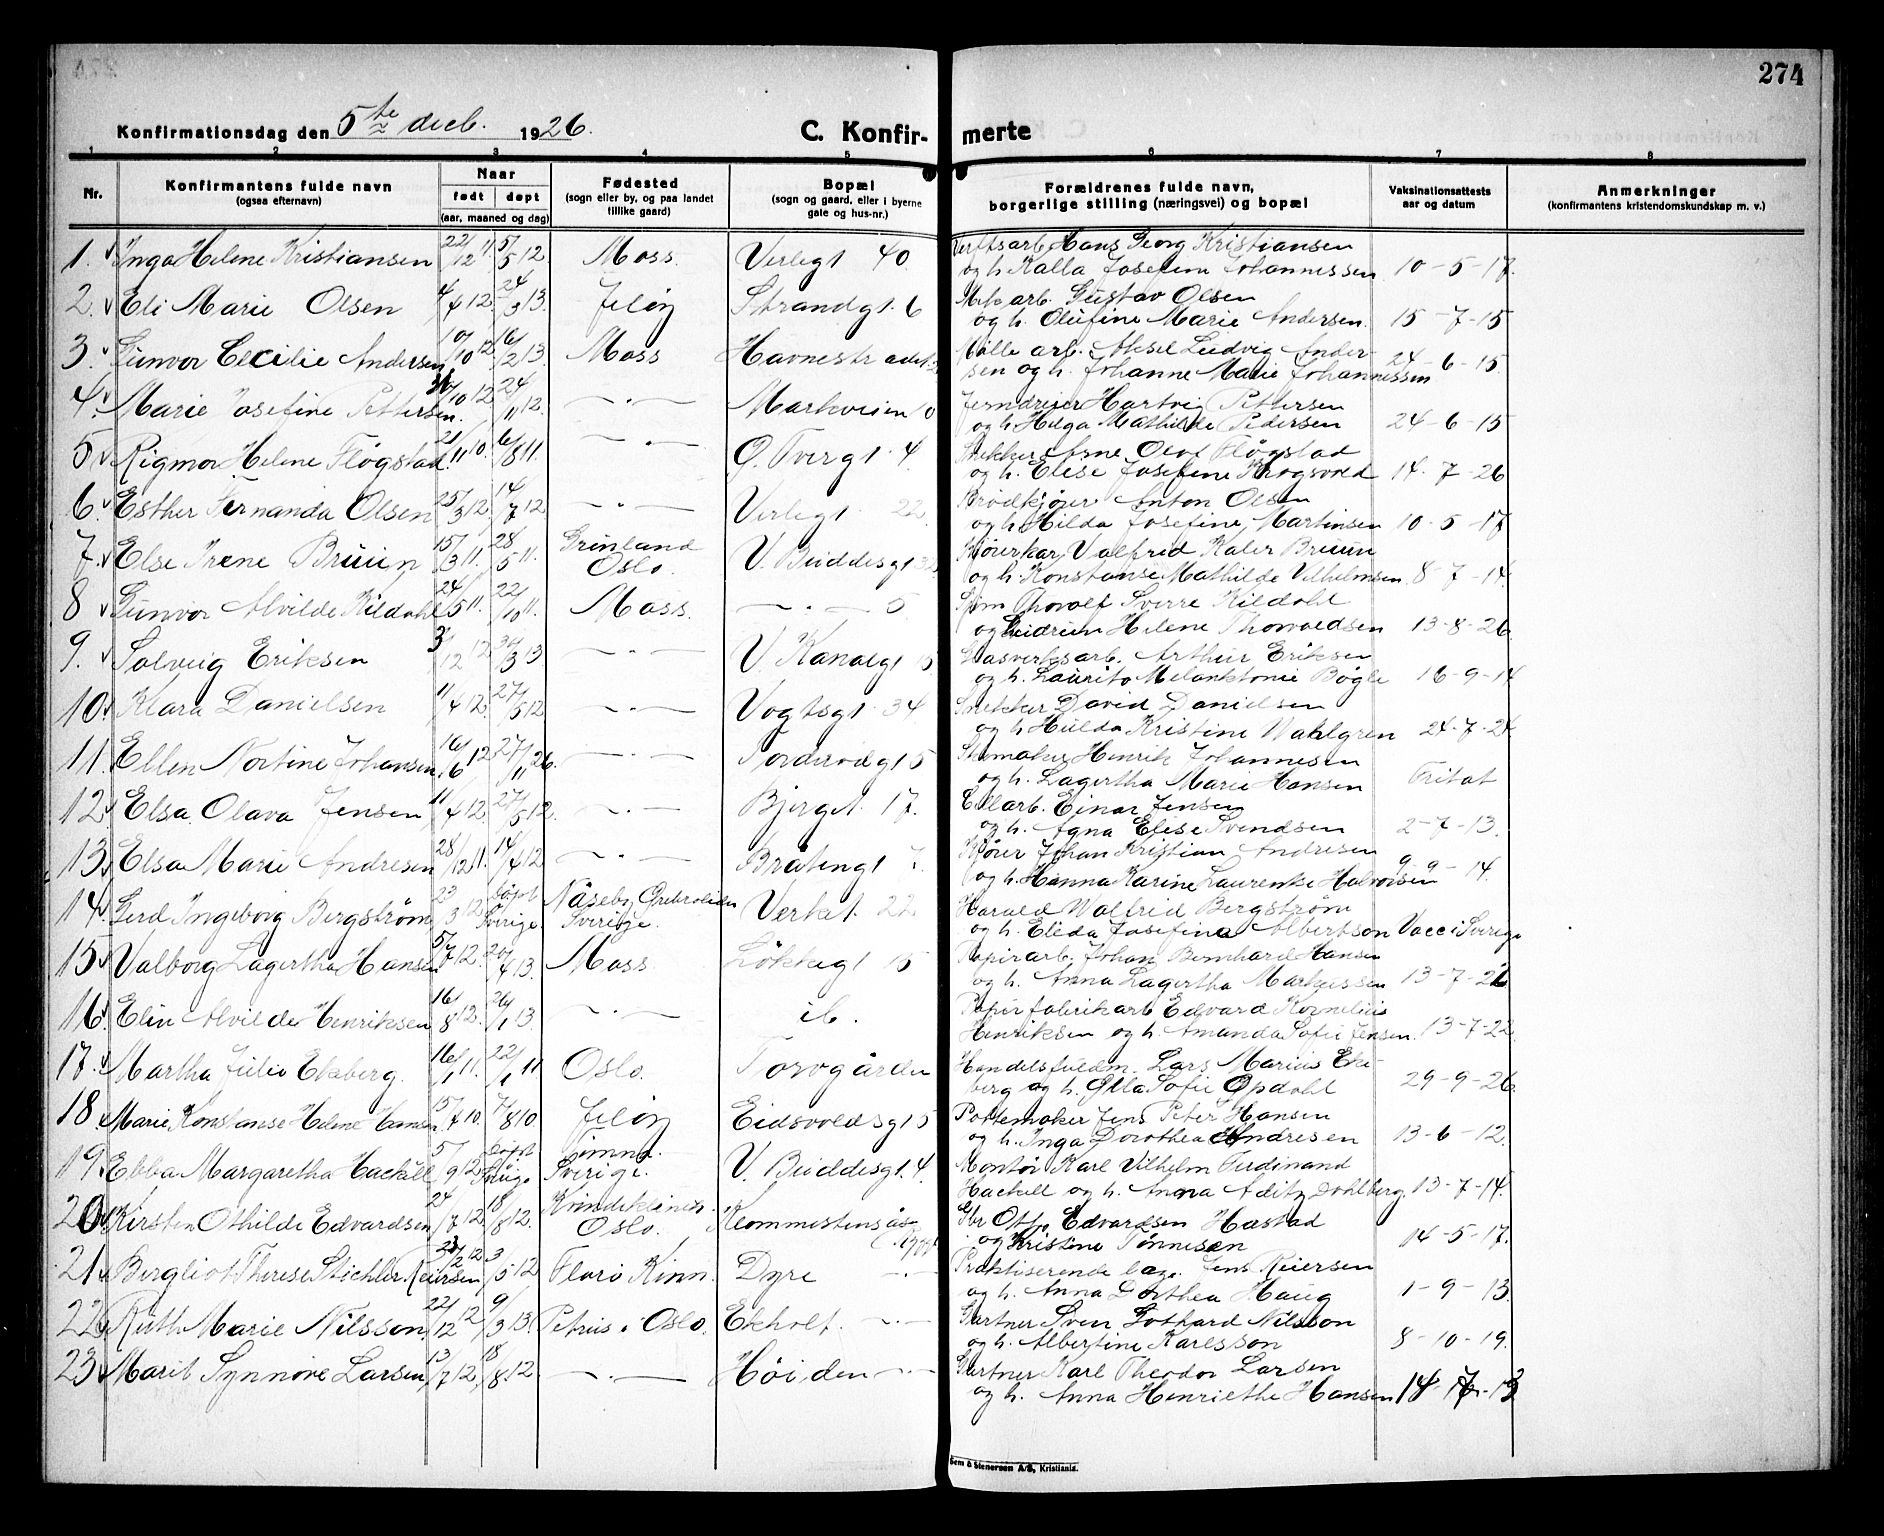 274
Konfirmationsdag den 5te decb. 1926.
C. Konfir- merte
1 2 3 4 5 6 7 8
Nr. Konfirmantens fulde navn (ogsaa efternavn) Naar født døpt (aar, maaned og dag) Fødested (sogn eller by, og paa landet tillike gaard) Bopæl (sogn og gaard, eller i byerne gate og hus-nr.) Forældrenes fulde navn, borgerlige stilling (næringsvei) og bopæl Vaksinationsattests aar og datum Anmerkninger (konfirmantens kristendomskundskap m. v.)
1. Inga Helene Kristiansen 22/11 12 5/5 12 Moss. Verlegt 40 Verftsarb. Hans Georg Kristiansen
og h. Kalla Josefine Johannessen 10-5-17.
2. Eli Marie Olsen 4/4 12. 24/3 13. Jeløy Strandgt. 6 Mek arb. Gustav Olsen
og h. Olufine Marie Andersen. 15-7-15
3. Gunvor Cecilie Andersen 10/10 12 6/2 13. Moss Havnestr Mølle arb. Aksel Ludvig Ander-
sen og h. Johanne Marie Johannessen 24-6-15.
4. Marie Josefine Pettersen. /10 12 24/11 12. —"— Markveien Jerndreier Hartvig Pettersen
og h. Helga Mathilde Pedersen 24-6-15
5 Rigmor Helene Fløgstad. 21/11 10. 6/8 11. —"— Ø. Tvergt. 4. Snekker Arne Olof Fløgstad
og h. Elise Josefine Krogsvold 14-7-26
6. Esther Fernanda Olsen 25/3 12. 14/7 12 —"— Verlegt 22. Brødkjører Anton Olsen
og h. Hilda Josefine Martinsen 10-5-17
7. Else Irene Bruun 15/3 11. 28/5 11. Grønland Oslo. V. Buddesgt Kjørerkar Valfrid Kaler Bruun
og h. Konstanse Mathilde Vilhelmsen 8-7-14.
8 Gunvor Alvilde Kildahl 24/5 11. 22/10 11. Moss. —"— 5 Thorolf Sverre Kildahl
og Gudrun Helene Thorvaldsen 13-8-26.
9. Solveig Eriksen 3/12 12 /3 13 —"— V. Kanalgt 15 Glasverksarb. Arthur Eriksen
og h. Laurito Melanktonie Bøgle 16-9-14
10. Klara Danielsen 11/4 12. 27/5 12 —"— Vogtsgt. 34 Snekker David Danielsen
og h. Hulda Kristine Wahlgren 24-7-24
11. Ellen Nortine Johansen 16/6 12 27/11 26. —"— Tordenvdgt 5 Skomaker Henrik Johannesen
og h. Lagertha Marie Hansen Fritat
12. Elsa Olava Jensen 11/4 12. 27/5 12. —"— Bjergt. 17. Cellarb. Einar Jensen
og h. Agna Elise Svendsen 2-7-13.
13. Elsa Marie Andresen 28/12 11. 14/4 12 —"— Bråtengt 7. Kjører Johan Kristian Andresen
og h. Hanna Karine Laurenke Halvorsen 9-9-14.
14. Gerd Ingeborg Bergström 23/3 12 døpt Sverige. Nåsebo Örebrolän Sverige. Verket. 22 Harald Walfrid Bergström
og h. Elida Josefina Albertson Vacc i Sverige
15. Valborg Lagertha Hansen 5/7 12. 20/4 13. Moss. Løkkegt 15 Papirarb. Johan Bernhard Hansen
og h. Anna Lagertha Markussen 13-7-26
16. Elin Alvilde Henriksen 16/8 12. 26/1 13. —"— ib. Papirfabrikarb Edvard Kornelius
Henriksen og h. Amanda Sofie Jensen. 13-7-22
17. Martha Julie Ekeberg. 16/1 11. 22/1 11 Oslo. Torvgården Handelsfuldm. Lars Marius Eke-
berg og h. Gilla Sofie Opdahl 29-9-26.
18. Marie Konstanse Helene Hansen. 15/4 10. 7/8 10. Jeløy Eidsvoldsgt 5 Pottemaker Jens Peter Hansen
og h. Inga Dorothea Andresen 13-6-12.
19. Ebba Margaretha Hackell 5/9 12. døpt Sverige Timmo. Sverige. V. Buddesgt. 4. Montør Karl Vilhelm Ferdinand
Hackell og h. Anna Dahlberg. 13-7-14.
20. Kirsten Othilde Edvardsen 24/7 12. 18/8 12. Oslo. Gbr Otto Edvardsen Hastad
og Kristine Tønnesen 14-5-17.
21. Bergliot Therese Stichler Reiersen /2 12 3/5 12 Florø Kinn. Dyre —"— Praktiserende læge. Jens Reiersen
og h. Anna Dorthea Haug 1-9-13.
22. Ruth Marie Nilsson. 22/12 12 9/3 13. Petrus. Oslo. Ekholt. —"— Gartner Sven Gothard Nilsson
og h. Albertine Karlsson 8-10-19.
23. Marit Synnøve Larsen, 13/7 12, 18/8 12 —"— Høiden —"— Gartner Karl Theodor Larsen
og h. Anna Henriethe Hansen 14-
Sem & Stenersen A/S, Kristiania.